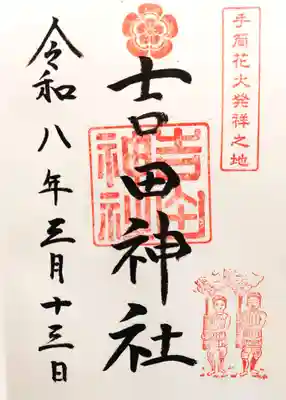 手筒花火発祥之地
吉田神社
吉田
神社
令和八年三月十三日